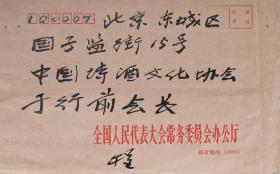 100007
北京东城区
国子监街15号
中国诗酒文化协会
于行前会长
全国人民代表大会常务委员会办公厅